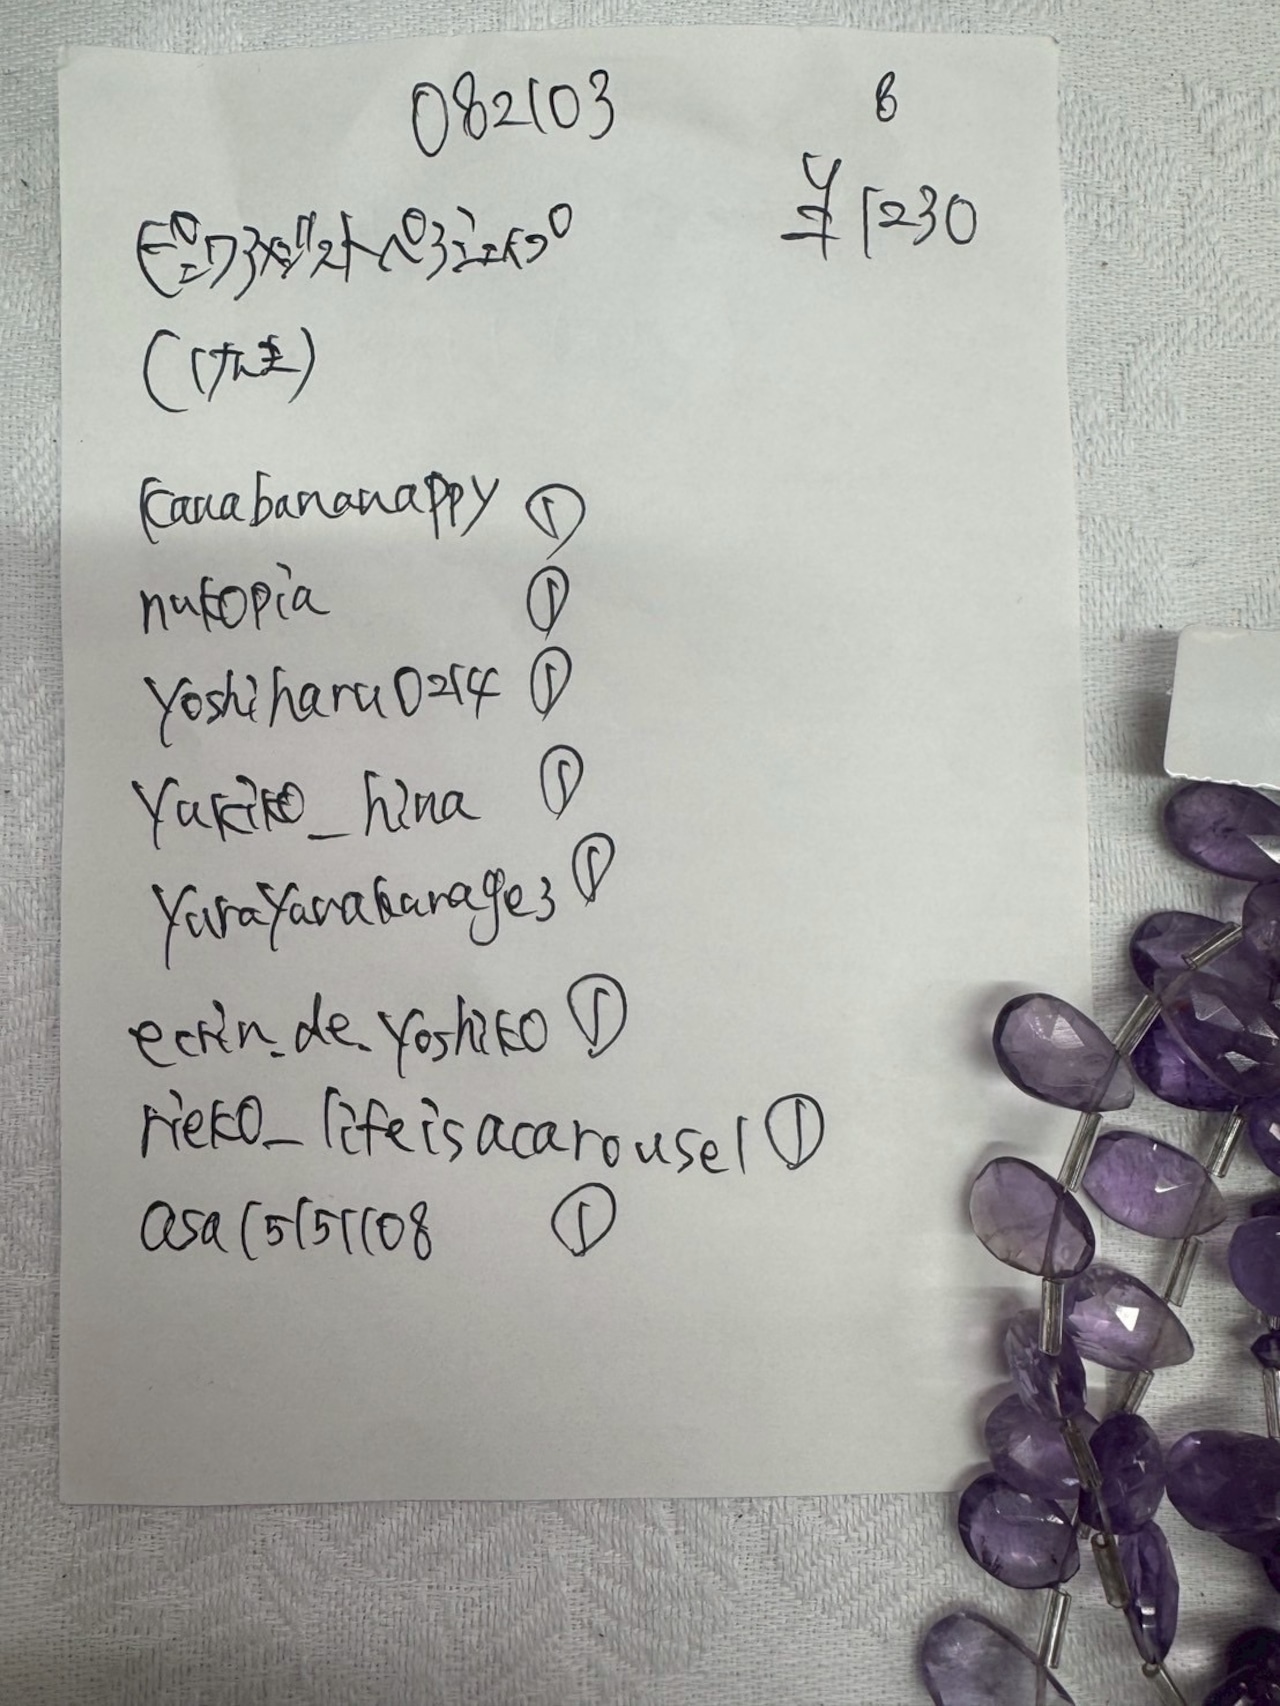 082103
8
¥1230
ピンクアメジストペアシェイプ
kanabananappy ①
nukopia ①
yoshiharu0214 ①
yukiko_hina ①
yurayurakurage3 ①
ecrin.de.yoshiko ①
rieko_lifeisacarousel ①
asa15151108 ①